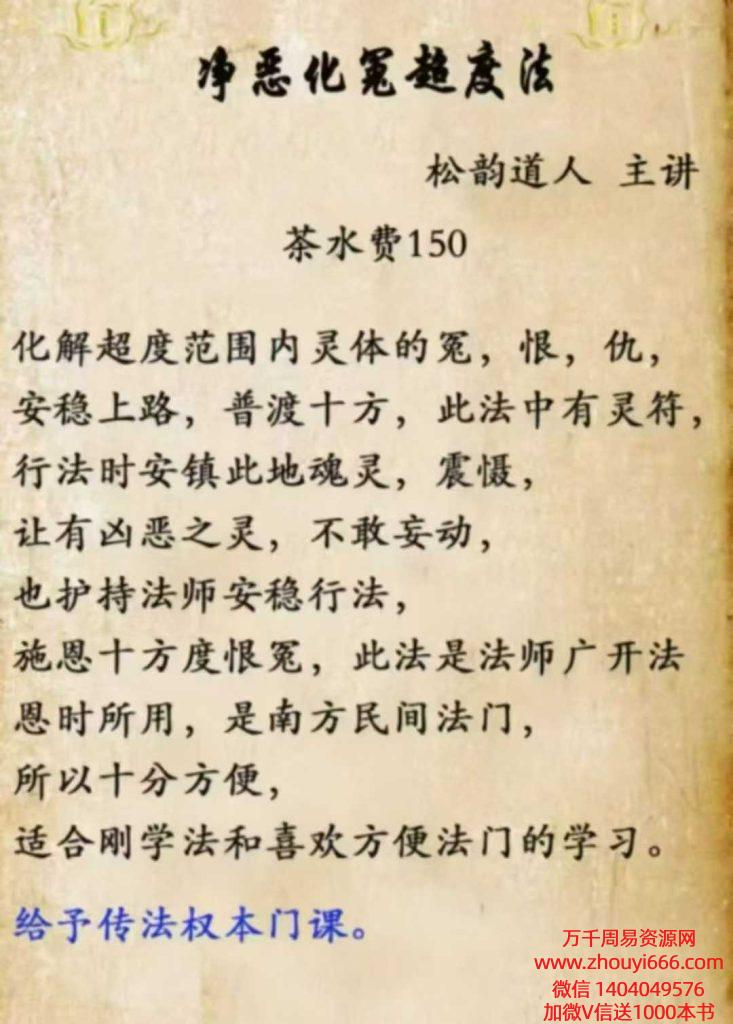 净恶化冤超度法
松韵道人 主讲
茶水费150
化解超度范围内灵体的冤，恨，仇，
安稳上路，普渡十方，此法中有灵符，
行法时安镇此地魂灵，震慑，
让有凶恶之灵，不敢妄动，
也护持法师安稳行法，
施恩十方度恨冤，此法是法师广开法
恩时所用，是南方民间法门，
所以十分方便，
适合刚学法和喜欢方便法门的学习。
给予传法权本门课。
万千周易资源网
www.zhouyi666.com
微信 1404049576
加微V信送1000本书